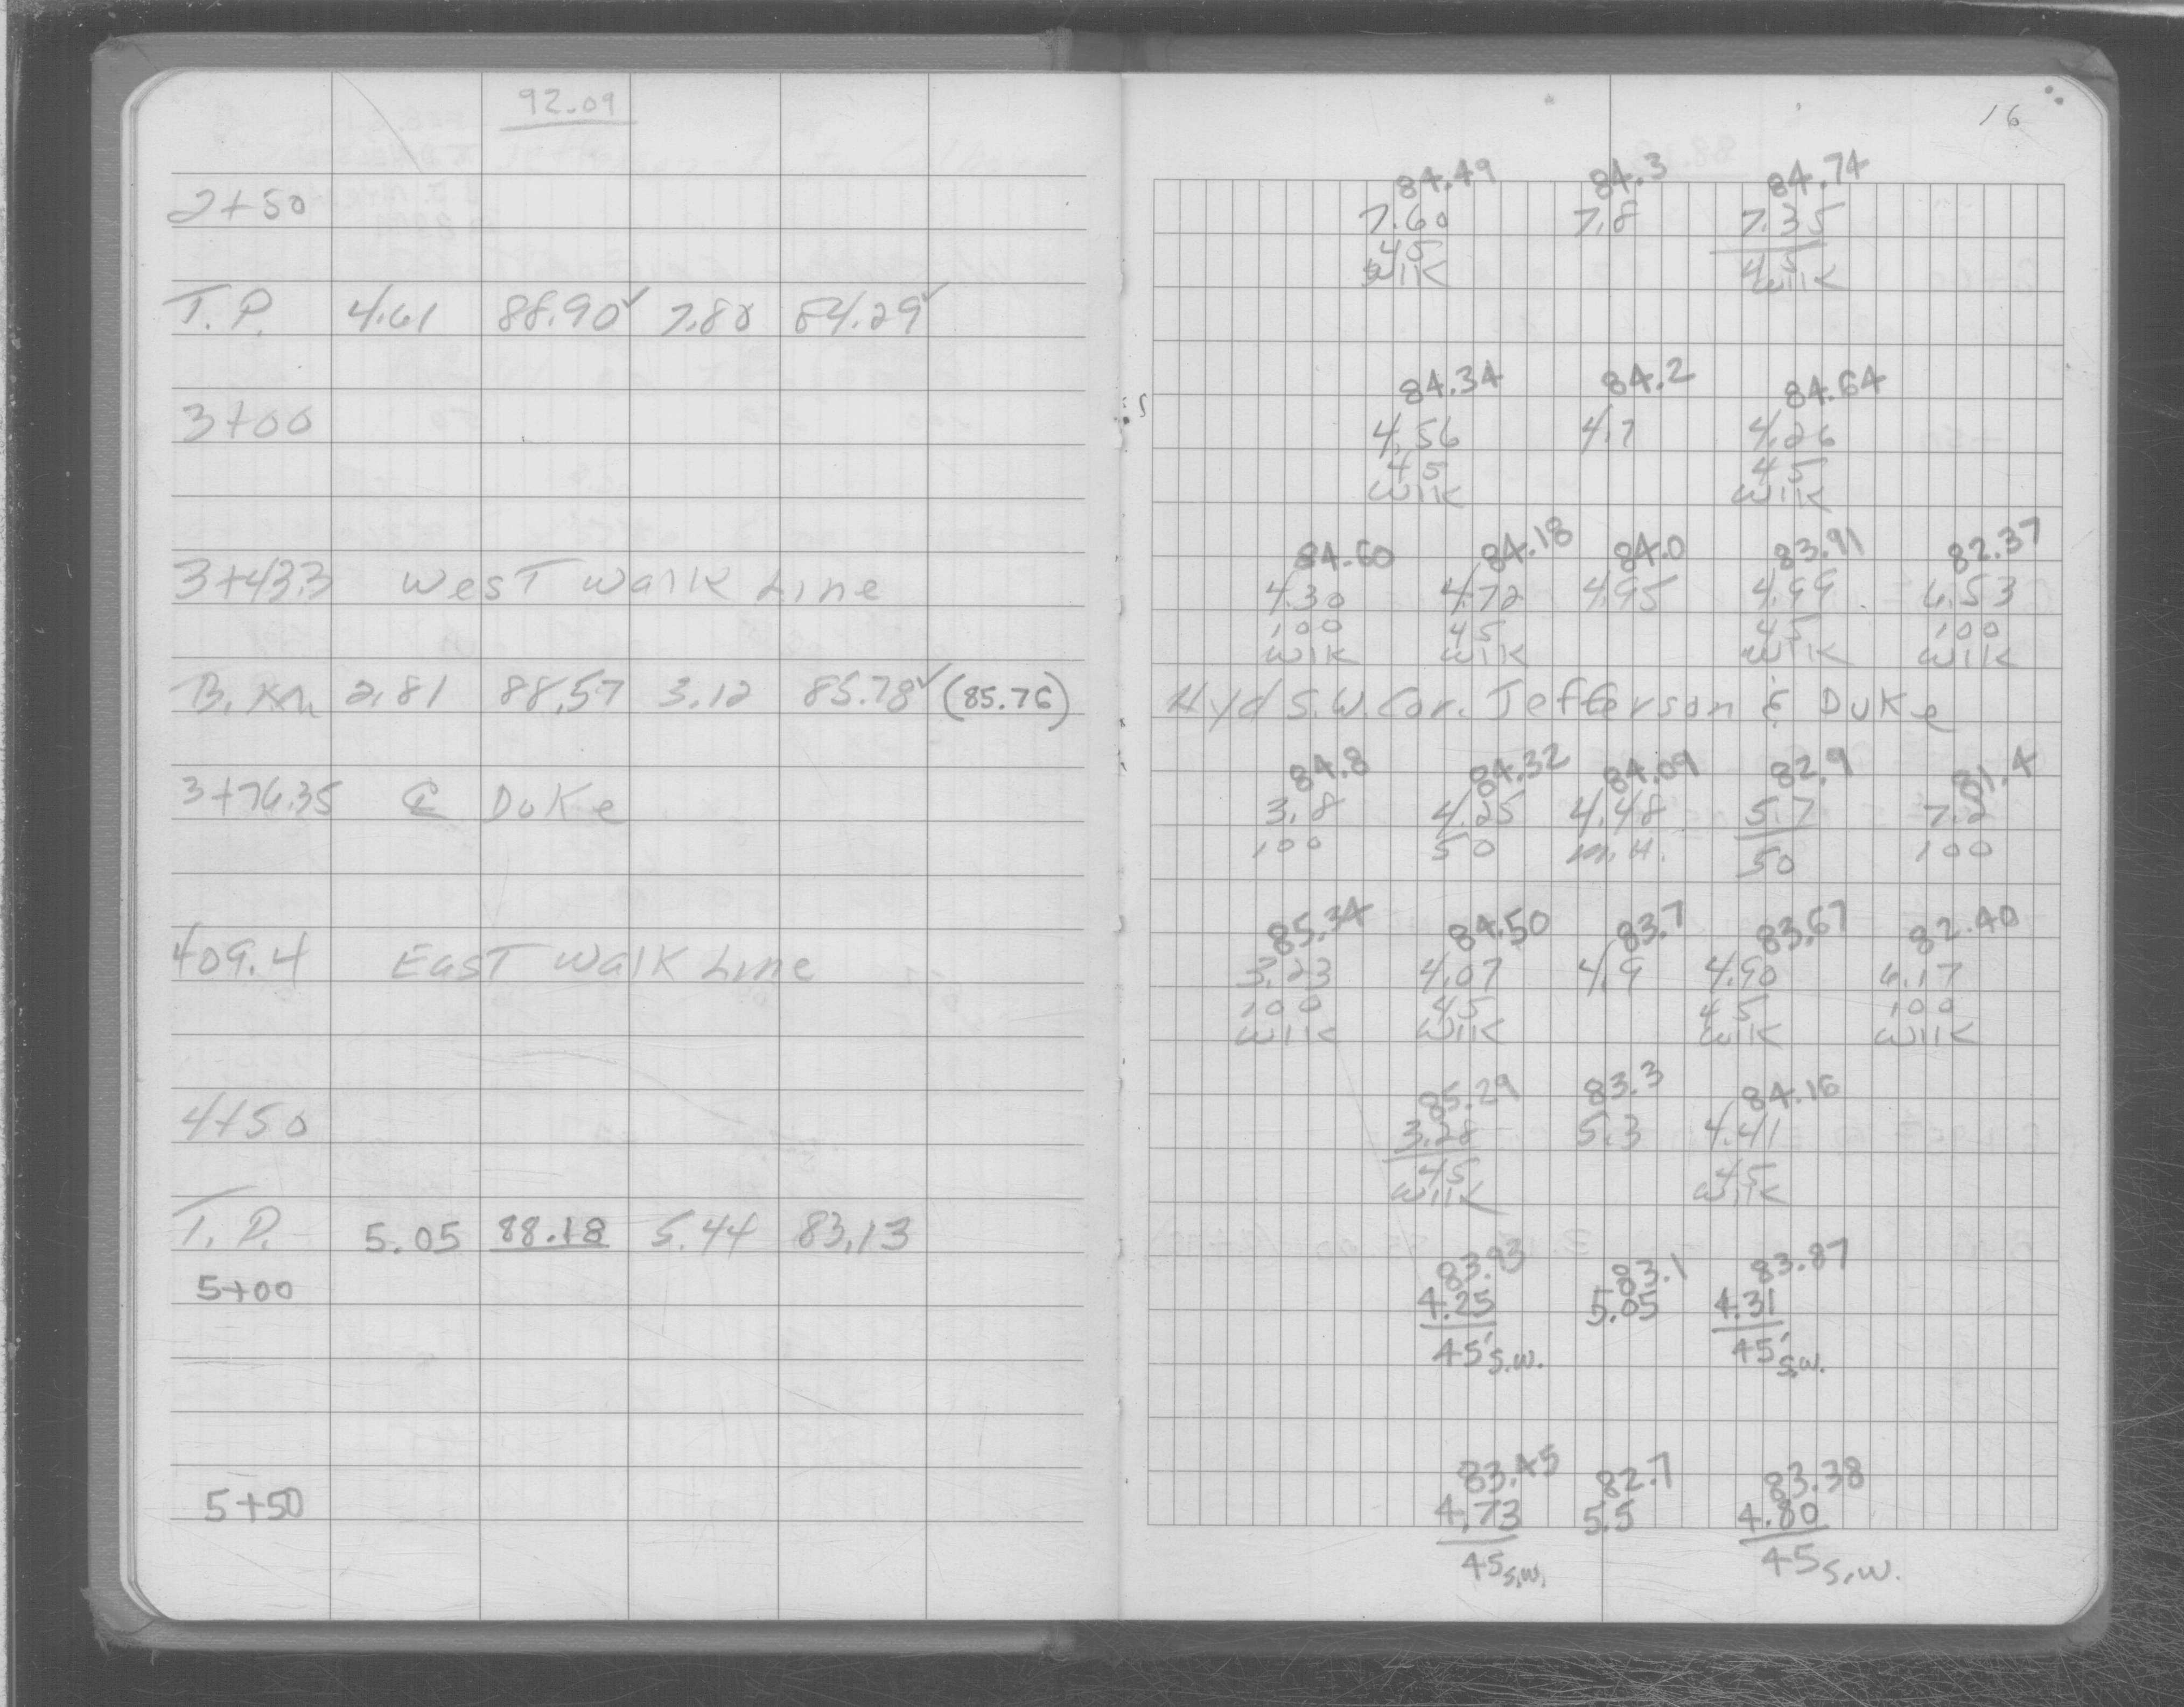 92.09
16
84.49 84.3 84.74
2+50 7.60 7.8 7.35
45 45
Wlk Wlk
T.P. 4.61 88.90✓ 7.80 84.29✓
84.34 84.2 84.64
3+00 4.56 4.7 4.26
45 45
Wlk Wlk
84.60 84.18 84.0 83.91 82.37
3+43.3 West Walk Line 4.30 4.72 4.95 4.99 6.53
100 45 45 100
Wlk Wlk Wlk Wlk
B.M. 2.81 88.57 3.12 85.78✓ (85.76) Hyd S.W. Cor. Jefferson & Duke
84.8 84.32 84.09 82.9 81.4
3+76.35 ℄ Duke 3.8 4.25 4.48 5.7 7.2
100 50 M.H. 50 100
85.34 84.50 83.7 83.67 82.40
409.4 East Walk Line 3.23 4.07 4.9 4.90 6.17
100 45 45 100
Wlk Wlk Wlk Wlk
85.29 83.3 84.16
4+50 3.28 5.3 4.41
45 45
Wlk Wlk
T.P. 5.05 88.18 5.44 83.13
83.93 83.1 83.87
5+00 4.25 5.05 4.31
45' S.W. 45' S.W.
83.45 82.7 83.38
5+50 4.73 5.5 4.80
45 S.W. 45 S.W.